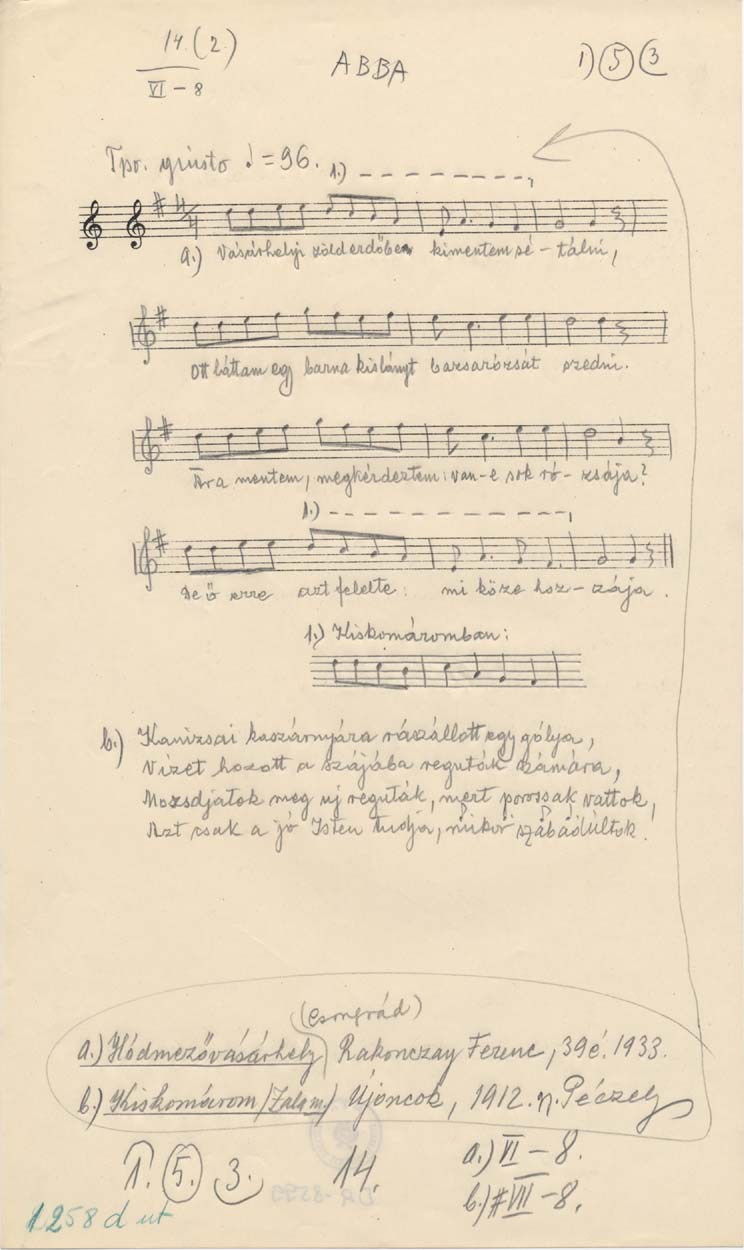 14. (2.)
VI – 8
ABBA
1) 5 3
Tpo. giusto ♩ = 96.
1.)
4/4
a.) Vásárhelyi zöld erdőben kimentem sé – tálni,
Ott láttam egy barna kislányt barsarózsát szedni.
Ára mentem, megkérdeztem: van-e sok ró – zsája?
1.)
De ő erre azt felelte: mi köze hoz – zája.
1.) Kiskomáromban:
b.) Kanizsai kaszárnyára rászállott egy gólya,
Vizet hozott a szájába reguták számára,
Mozsdjatok meg uj reguták, mert porossak vattok,
Azt csak a jó Isten tudja, mikor szabadúltok.
(Csongrád)
a.) Hódmezővásárhely Rakonczay Ferenc, 39 é. 1933.
b.) Kiskomárom (Zala m.) Újoncok, 1912. Gy. Péczely
1. 5. 3. 14. a.) VI – 8.
b.) #VII – 8.
1258 d ut